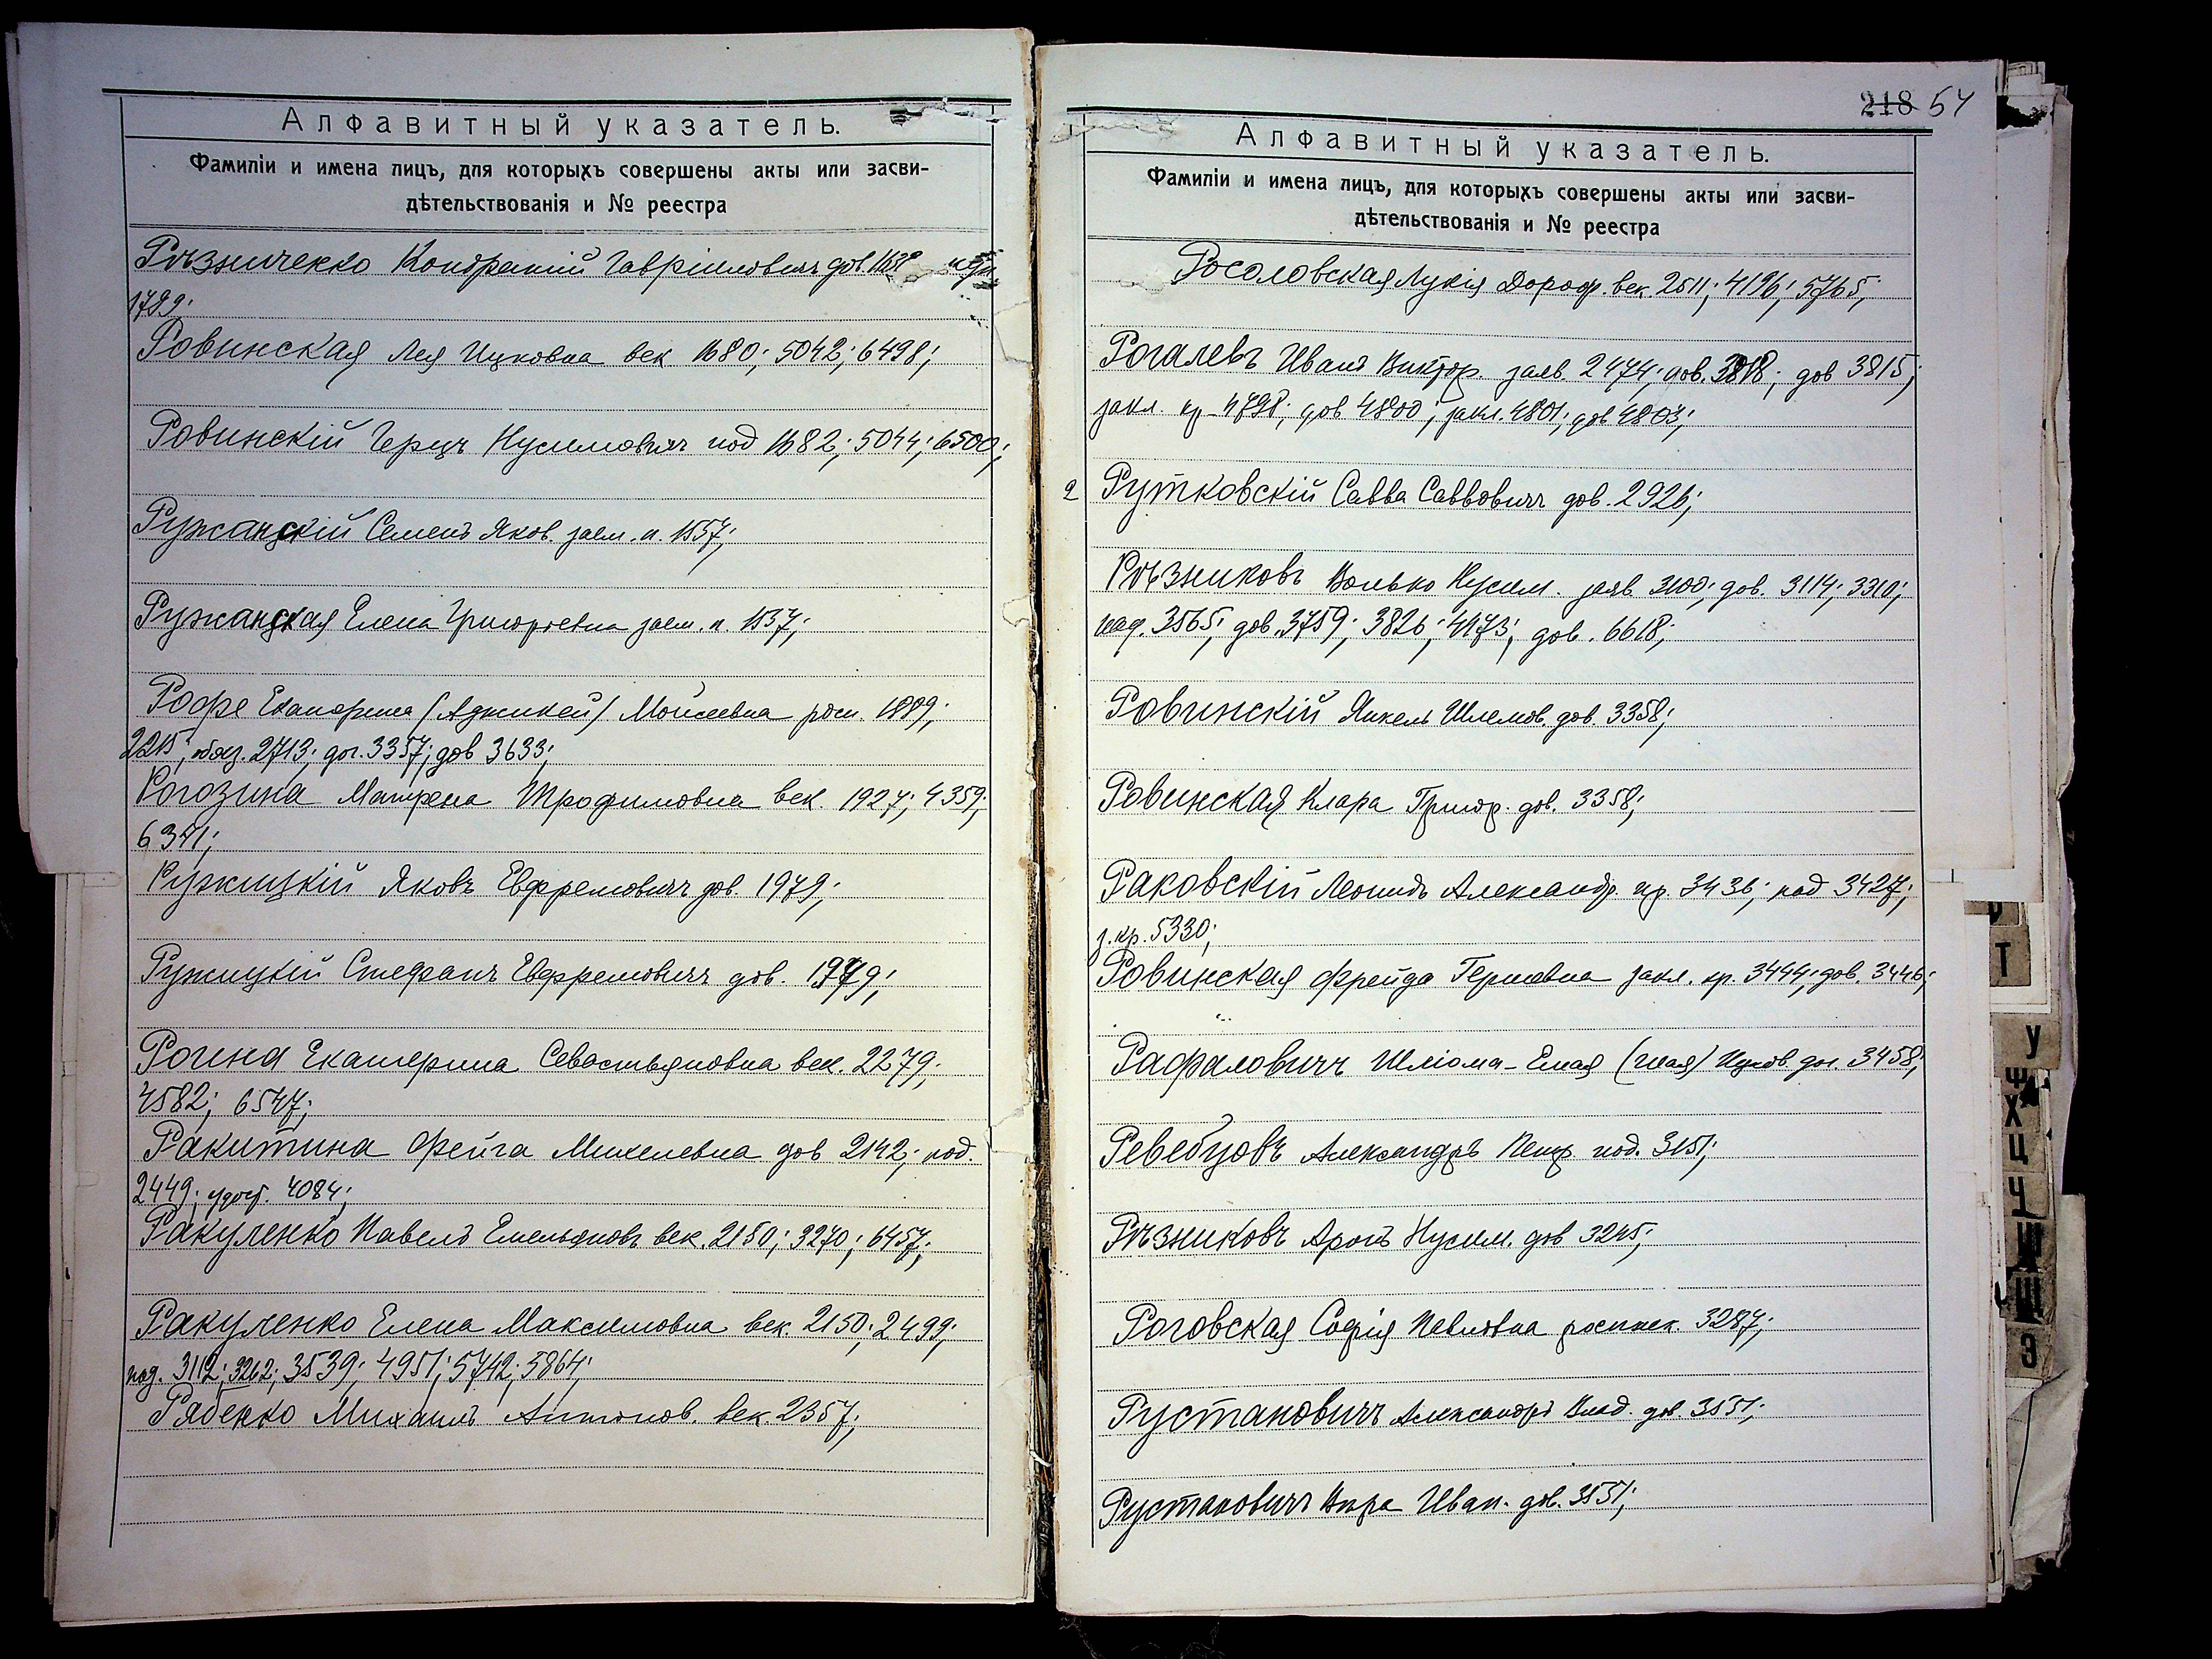 Алфавитный указатель.
Фамиліи и имена лицъ, для которыхъ совершены акты или засви-
дѣтельствованія и № реестра
Рѣзниченко Кондратій Гавріиловичъ дов.
1789;
Ровинская Лея Ицковна век. 1680; 5042; 6498;
Ровинскій Герцъ Нусимовичъ под 1682; 5044; 6500;
Ружанскій Семенъ Яков. заем. п. 1557;
Ружанская Елена Григорьевна заем. п. 1537;
Рофе Екатерина (Аджикей) Моисеевна росп. 1889;
2215; обяз. 2713; дог. 3357; дов 3633;
Рогозина Матрена Трофимовна век. 1927; 4359;
6371;
Ружицкій Яковъ Евфремовичъ дов. 1979;
Ружицкій Стефанъ Евфремовичъ дов. 1979;
Рогина Екатерина Севастьяновна век. 2279;
4582; 6547;
Ракитина Фейга Михелевна дов 2142; под.
2449; удост. 4084;
Ракуленко Павелъ Емельяновъ век. 2150; 3270; 6457;
Ракуленко Елена Максимовна век. 2150; 2499;
под. 3112; 3262; 3539; 4951; 5742; 5864;
Рябенко Михаилъ Антонов. век. 2357;
218 54
Алфавитный указатель.
Фамиліи и имена лицъ, для которыхъ совершены акты или засви-
дѣтельствованія и № реестра
Росоловская Лукія Дороф. век. 2511; 4196; 5765;
Рогалевъ Иванъ Виктор. заяв. 2474; дов. 3818; дов 3815;
закл. кр. 4798; дов 4800; закл. 4801; дов 4803;
2 Рутковскій Савва Саввовичъ дов. 2926;
Рѣзниковъ Волько Нусим. заяв. 3100; дов. 3114; 3310;
над. 3565; дов. 3759; 3826; 4173; дов. 6618;
Ровинскій Янкель Шлемов. дов. 3358;
Ровинская Клара Григор. дов. 3358;
Раковскій Леонидъ Александр. кр. 3436; под 3427;
з. кр. 5330;
Ровинская Фрейда Гершовна закл. кр. 3444; дов. 3446;
Рафаловичъ Шліома-Ешая (Шая) Ицков. дог. 3458;
Ревебцовъ Александръ Петр. под. 3151;
Рѣзниковъ Аронъ Нусим. дов 3245;
Роговская Софія Павловна росписк. 3287;
Рустановичъ Александръ Влад. дов. 3551;
Рустановичъ Вѣра Иван. дов. 3551;
Т
У
Ф
Х
Ц
Ч
Ш
Щ
Э